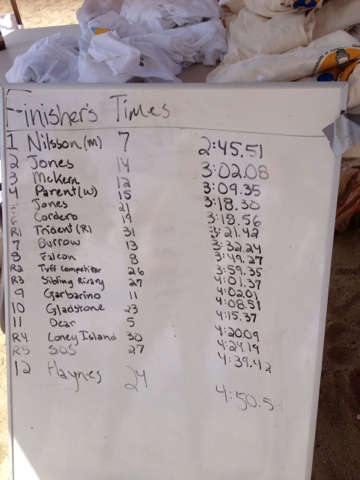 Finisher's Times
1 Nilsson(m) 7 2:45.51
2 Jones 14 3:02.08
3 McKern 12 3:09.35
4 Parent(w) 15 3:18.30
Jones 21 3:18.56
6 Cordero 19 3:21.42
R1 Trident(R) 31 3:32.24
7 Burrow 13 3:49.27
8 Falcon 8 3:59.35
R2 Tuff Competitor 26 4:01.37
R3 Sibling Rivary 27 4:02.01
9 Garbarino 11 4:08.51
10 Gladstone 23 4:15.37
11 Dear 5 4:20.09
R4 Coney Island 30 4:24.19
R5 SOS 27 4:39.42
12 Haynes 24